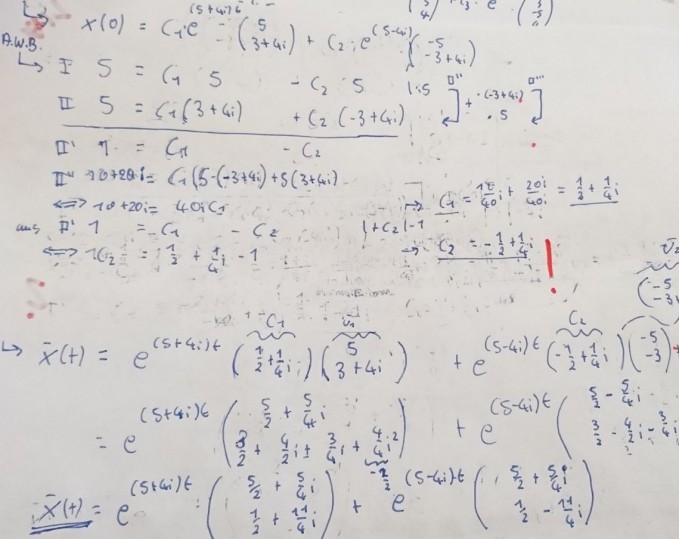 x(0) = C₁e^(5+4i)t (5 / 3+4i) + C₂ e^(5-4i) (-5 / -3+4i)
A.W.B.
I 5 = C₁ 5 - C₂ 5 |:5
II 5 = C₁(3+4i) + C₂(-3+4i) ·(-3+4i) + ·5
= C₁ - C₂
= C₁(5·(-3+4i)+5(3+4i)
⟺ 10+20i = 40iC₁ → C₁ = i + 20i/40i = + 1/4 i
aus 1 = C₁ - C₂ |+C₂|-1
⟺ 1C₂ = 1/2 + 1/4 i - 1 → C₂ = -1/2 + 1/4 i !
C₁ v₁ C₂
x(t) = e^(5+4i)t (1/2 + 1/4 i)(5 / 3+4i) + e^(5-4i)t (-1/2 + 1/4 i)(-5 / -3)
= e^(5+4i)t (5/2 + 5/4 i / 3/2 + 4/2 i + 3/4 i + 4/4 i²) + e^(5-4i)t (5/2 - 5/4 i / 3/2 - 4/2 i - 3/4 i
x(t) = e^(5+4i)t · (5/2 + 5/4 i / 1/2 + 11/4 i) + e^(5-4i)t (5/2 + 5/4 i / 1/2 - 11/4 i)